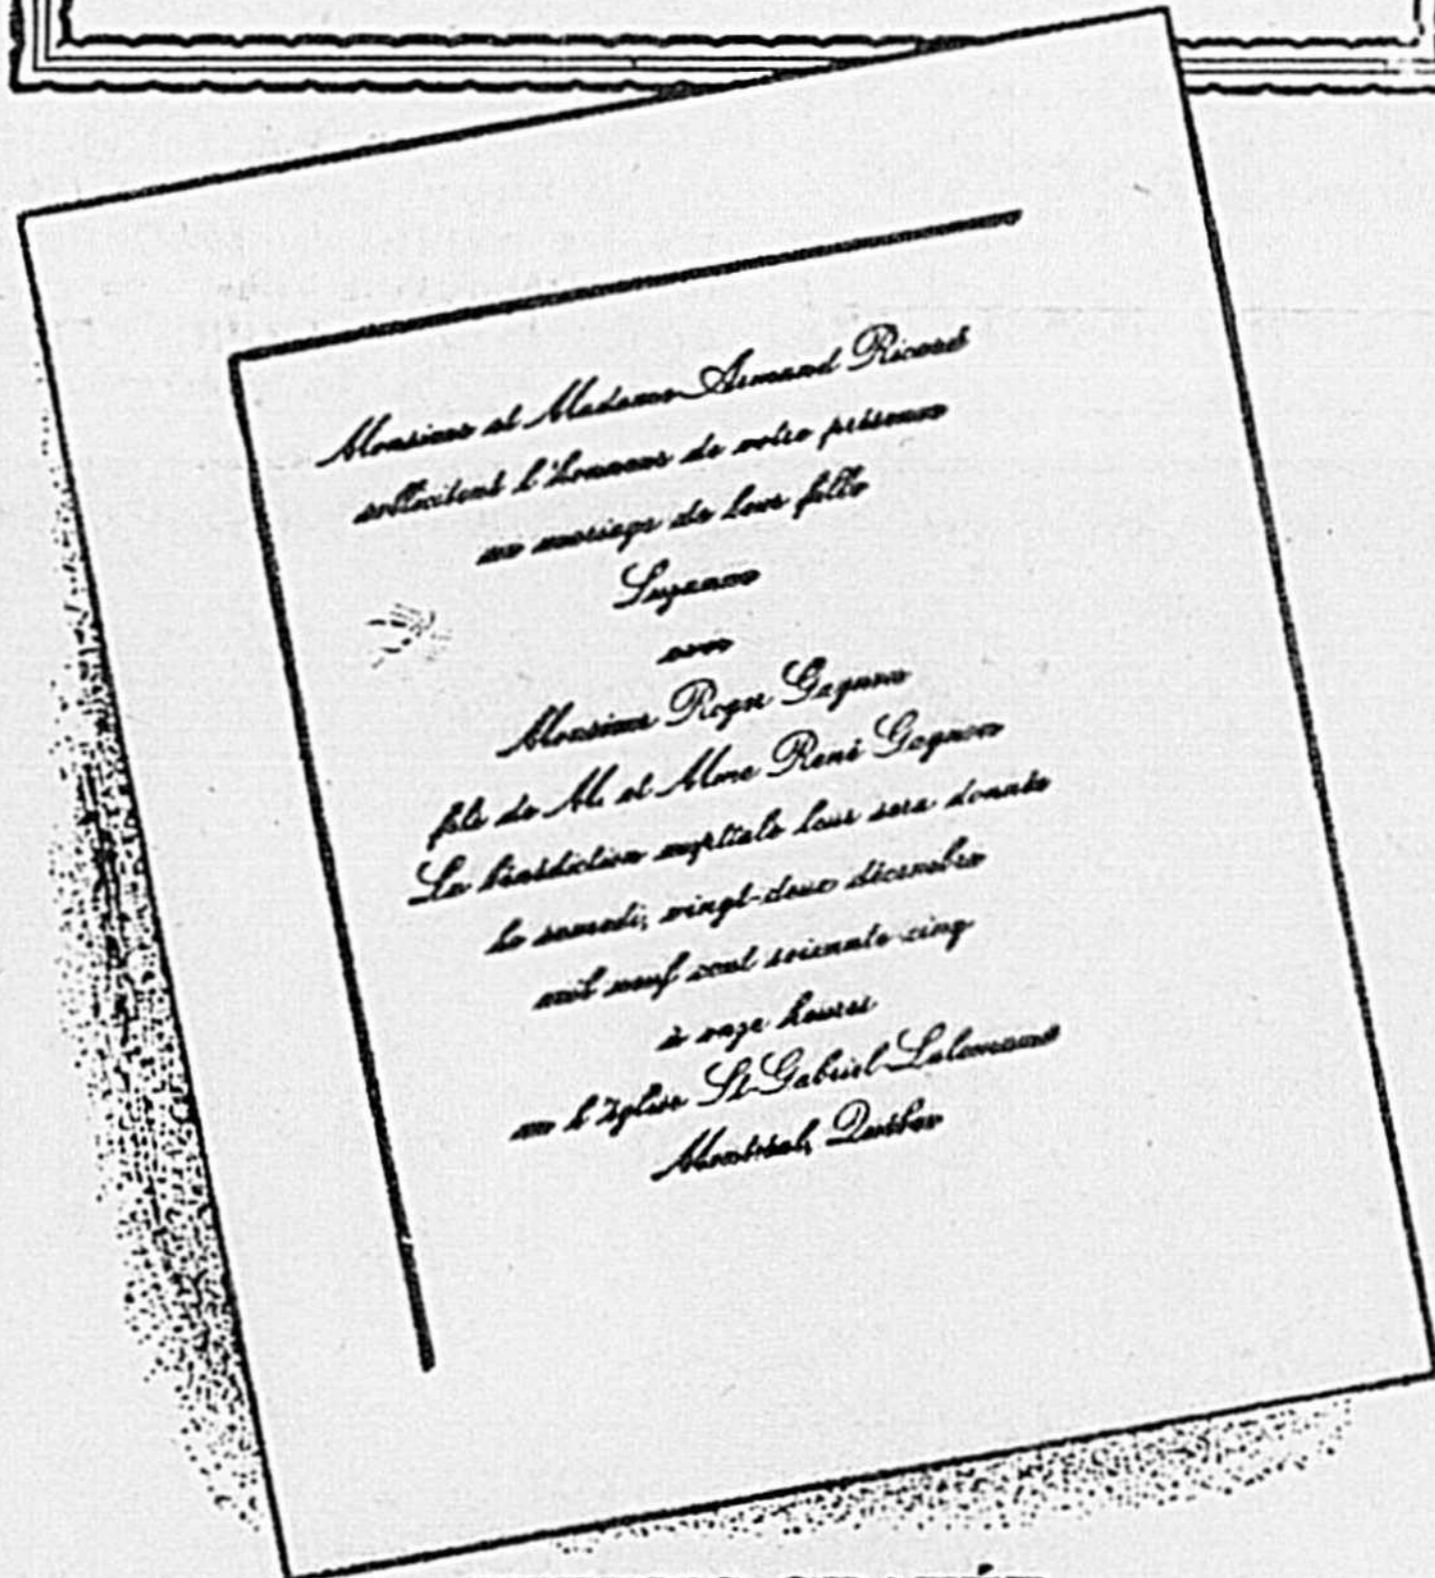 Monsieur et Madame Armand Ricard
sollicitent l'honneur de votre présence
au mariage de leur fille
Suzanne
avec
Monsieur Roger Gagnon
fils de M. et Mme René Gagnon
La bénédiction nuptiale leur sera donnée
le samedi, vingt-deux décembre
mil neuf cent soixante-cinq
à onze heures
en l'église St-Gabriel-Lalemant
Montréal, Québec